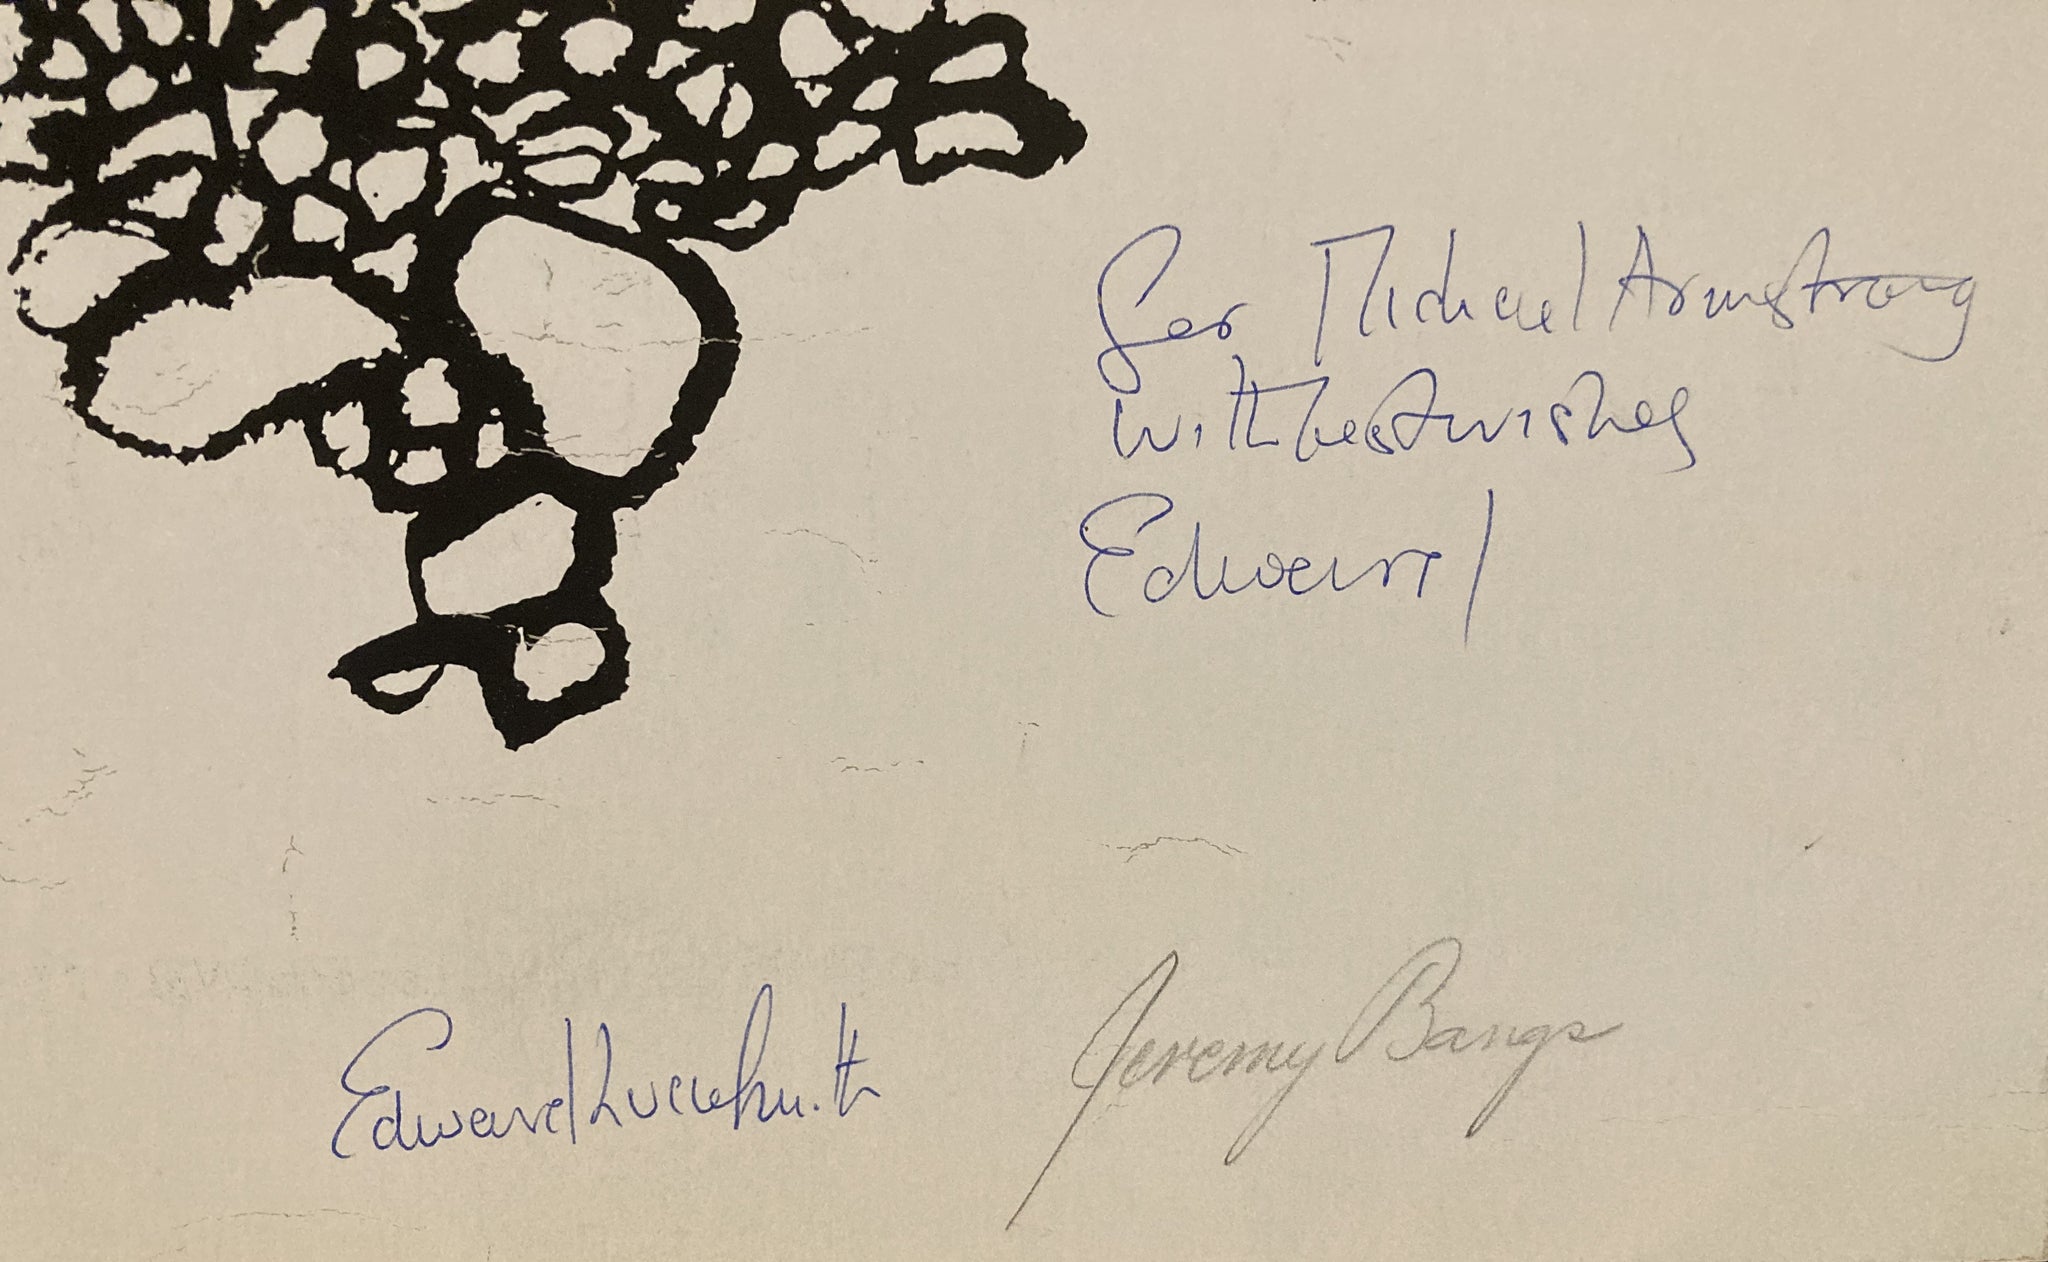 for Michael Armstrong
with best wishes
Edward
Edward Lucie-Smith
Jeremy Bangs